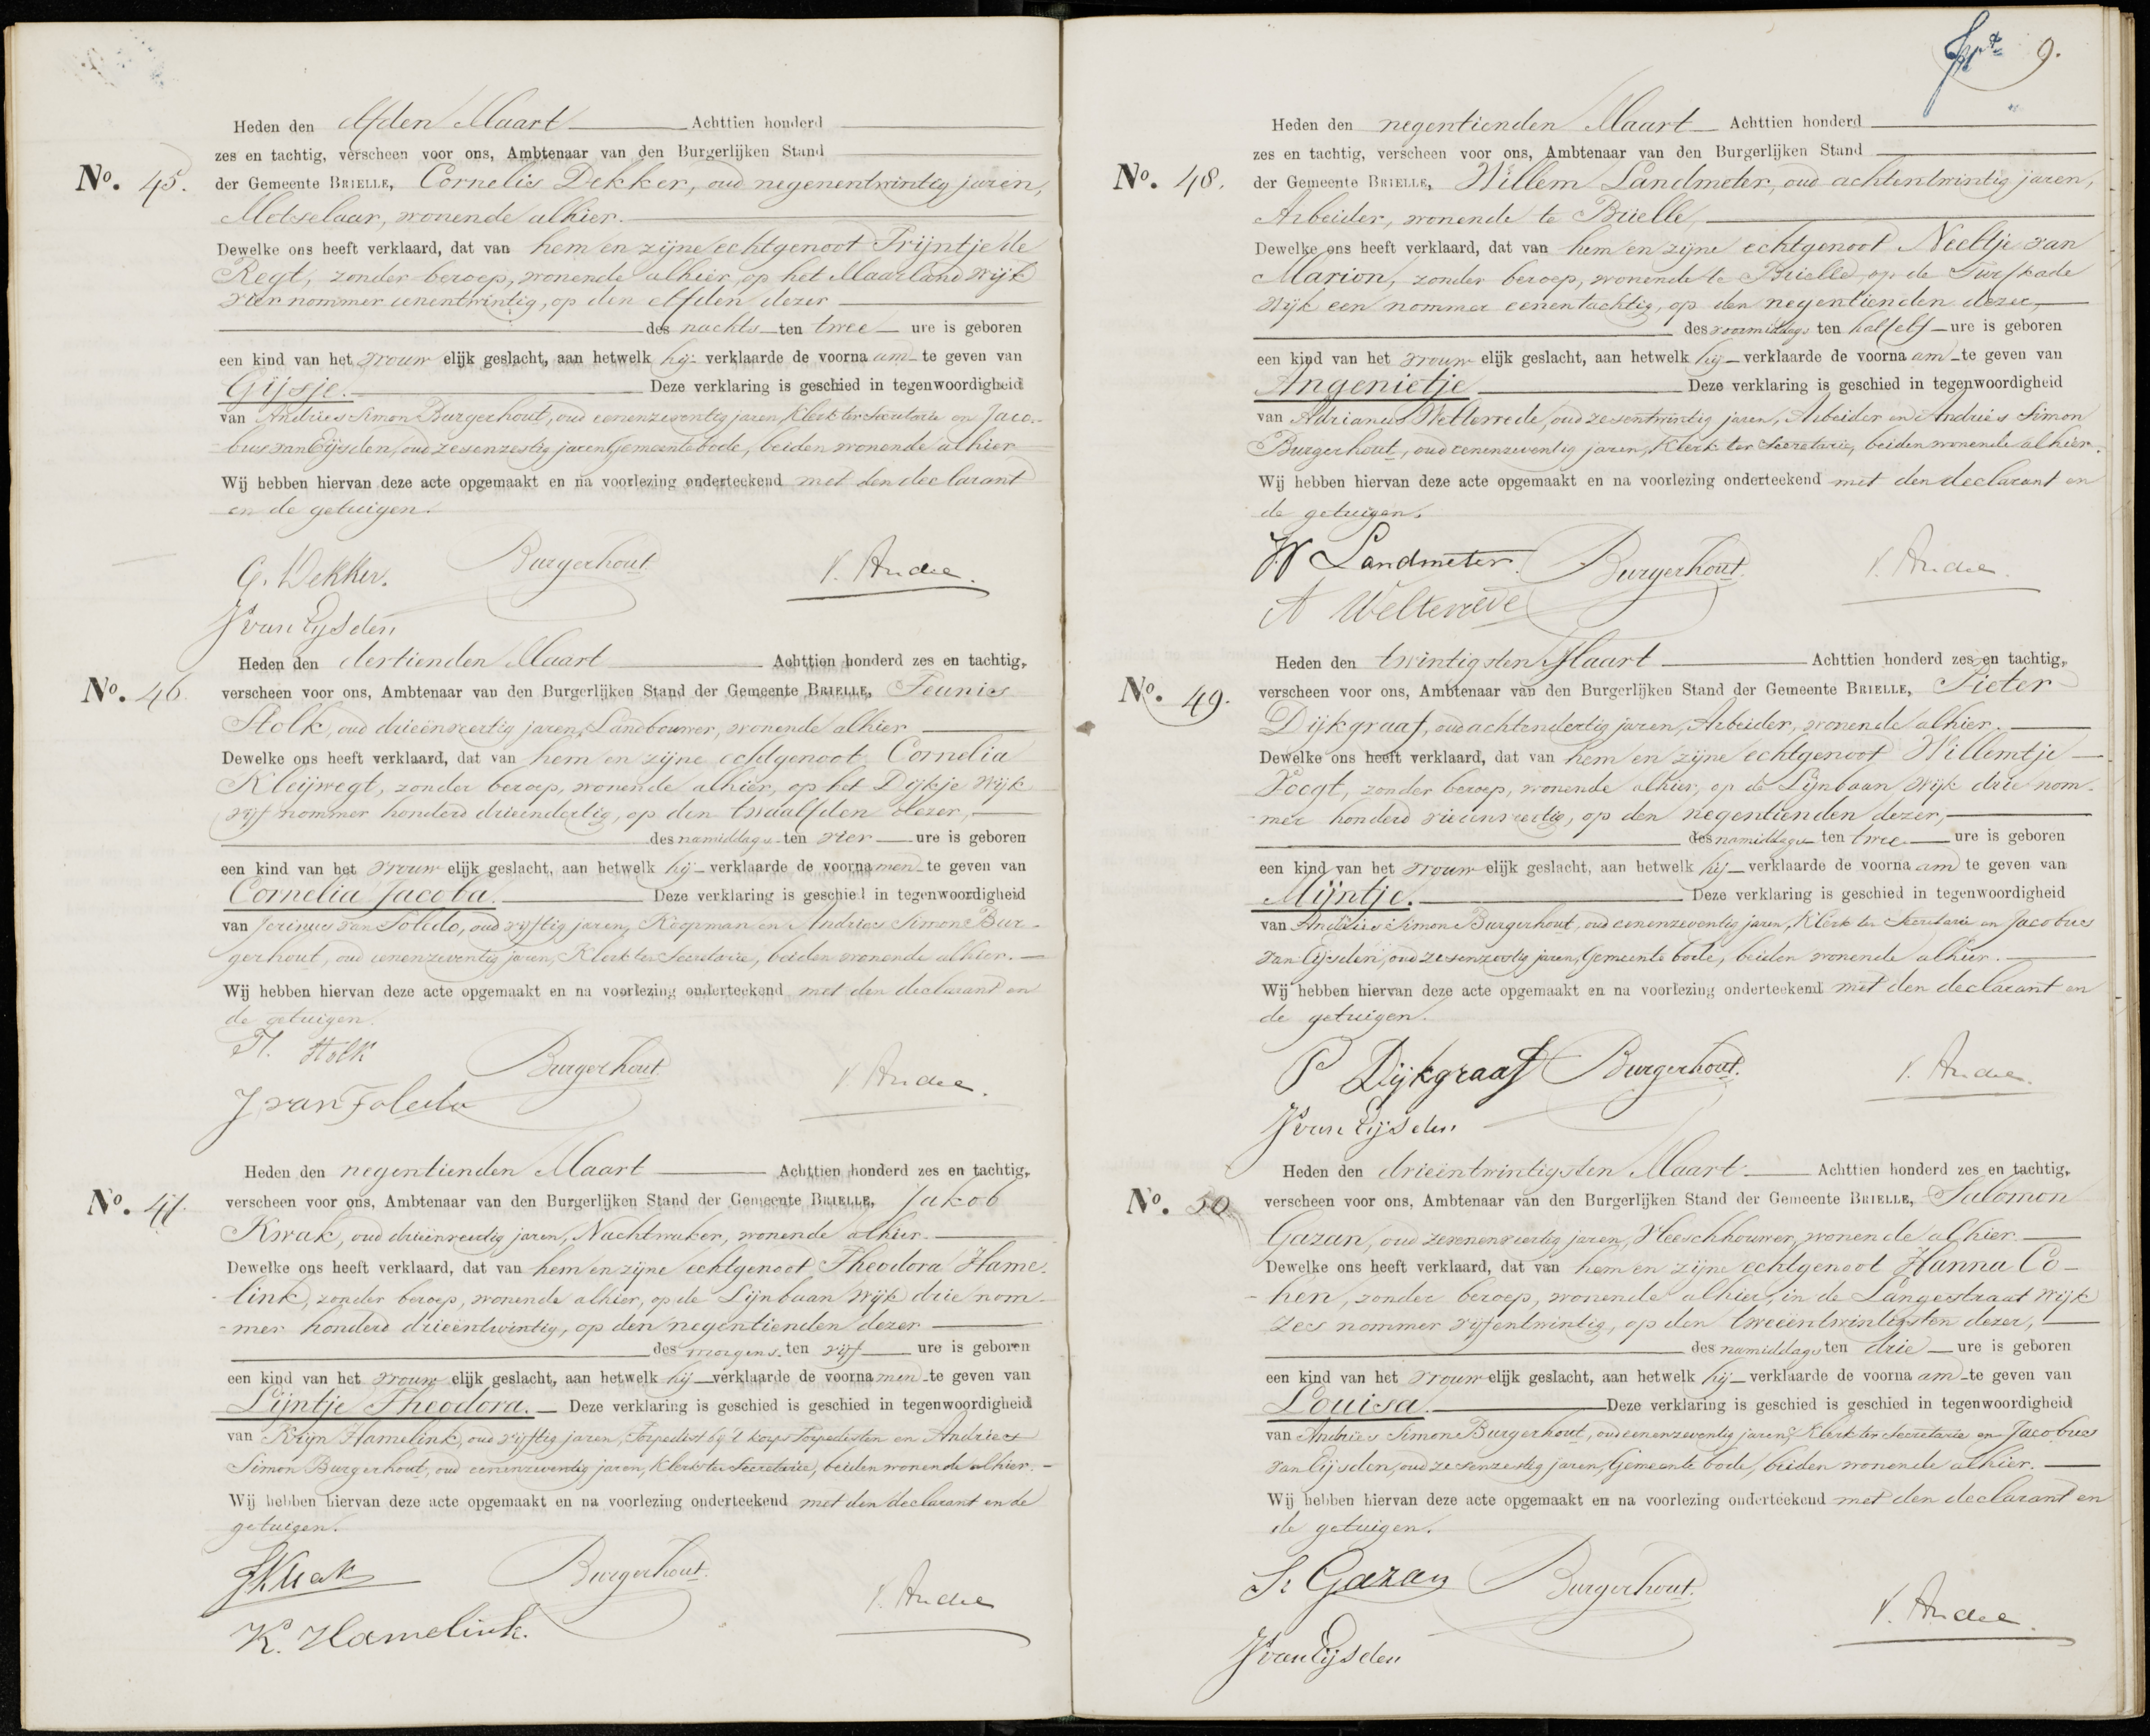 Heden den elfden Maart Achttien honderd
zes en tachtig, verscheen voor ons, Ambtenaar van den Burgerlijken Stand
No. 45. der Gemeente BRIELLE, Cornelis Dekker, oud negenentwintig jaren,
Metselaar, wonende alhier.
Dewelke ons heeft verklaard, dat van hem en zijne echtgenoot Trijntje de
Regt, zonder beroep, wonende alhier, op het Maarland Wijk
vier nommer eenentwintig, op den elfden dezer
des nachts ten twee ure is geboren
een kind van het vrouwelijk geslacht, aan hetwelk hij verklaarde de voornaam te geven van
Gijsje. Deze verklaring is geschied in tegenwoordigheid
van Andries Simon Burgerhout, oud eenenzeventig jaren, Klerk ter Secretarie en Jaco-
bus van Eijsden, oud zesenzestig jaren Gemeentebode, beiden wonende alhier
Wij hebben hiervan deze acte opgemaakt en na voorlezing onderteekend met den declarant
en de getuigen.
C. Dekker. Burgerhout V. Andre.
J van Eijsden
Heden den dertienden Maart Achttien honderd zes en tachtig,
No. 46 verscheen voor ons, Ambtenaar van den Burgerlijken Stand der Gemeente BRIELLE, Teunis
Stolk, oud drieënveertig jaren, Landbouwer, wonende alhier
Dewelke ons heeft verklaard, dat van hem en zijne echtgenoot Cornelia
Kleijwegt, zonder beroep, wonende alhier, op het Dijkje Wijk
vijf nommer honderd drieëndertig, op den twaalfden dezer,
des namiddags ten vier ure is geboren
een kind van het vrouwelijk geslacht, aan hetwelk hij verklaarde de voornamen te geven van
Cornelia Jacoba. Deze verklaring is geschied in tegenwoordigheid
van Jorinus van Toledo, oud vijftig jaren, Koopman en Andries Simon Bur-
gerhout, oud eenenzeventig jaren, Klerk ter Secretarie, beiden wonende alhier.
Wij hebben hiervan deze acte opgemaakt en na voorlezing onderteekend met den declarant en
de getuigen.
Stolk Burgerhout V. Andre.
J van Toledo
Heden den negentienden Maart Achttien honderd zes en tachtig,
No. 47. verscheen voor ons, Ambtenaar van den Burgerlijken Stand der Gemeente BRIELLE, Jakob
Kwak, oud drieënveertig jaren, Nachtwaker, wonende alhier.
Dewelke ons heeft verklaard, dat van hem en zijne echtgenoot Theodora Hame-
link, zonder beroep, wonende alhier, op de Lijnbaan Wijk drie nom-
mer honderd drieëntwintig, op den negentienden dezer
des morgens ten vijf ure is geboren
een kind van het vrouwelijk geslacht, aan hetwelk hij verklaarde de voornamen te geven van
Lijntje Theodora. Deze verklaring is geschied is geschied in tegenwoordigheid
van Krijn Hamelink, oud vijftig jaren, Torpedist bij 't korps Torpedisten en Andries
Simon Burgerhout, oud eenenzeventig jaren, Klerk ter Secretarie, beiden wonende alhier.
Wij hebben hiervan deze acte opgemaakt en na voorlezing onderteekend met den declarant en de
getuigen.
J Kwak Burgerhout. V. Andre
K. Hamelink.
9.
Heden den negentienden Maart Achttien honderd
zes en tachtig, verscheen voor ons, Ambtenaar van den Burgerlijken Stand
No. 48. der Gemeente BRIELLE, Willem Landmeter, oud achtentwintig jaren,
Arbeider, wonende te Brielle,
Dewelke ons heeft verklaard, dat van hem en zijne echtgenoot Neeltje van
Marion, zonder beroep, wonende te Brielle, op de Turfkade
Wijk een nommer eenentachtig, op den negentienden dezer,
des voormiddags ten half elf ure is geboren
een kind van het vrouwelijk geslacht, aan hetwelk hij verklaarde de voornaam te geven van
Angenietje Deze verklaring is geschied in tegenwoordigheid
van Adrianus Weltevrede, oud zesentwintig jaren, Arbeider en Andries Simon
Burgerhout, oud eenenzeventig jaren, Klerk ter Secretarie, beiden wonende alhier.
Wij hebben hiervan deze acte opgemaakt en na voorlezing onderteekend met den declarant en
de getuigen.
W Landmeter. Burgerhout. V. Andre.
A Weltevrede
Heden den twintigsten Maart Achttien honderd zes en tachtig,
No. 49. verscheen voor ons, Ambtenaar van den Burgerlijken Stand der Gemeente BRIELLE, Pieter
Dijkgraaf, oud achtendertig jaren, Arbeider, wonende alhier.
Dewelke ons heeft verklaard, dat van hem en zijne echtgenoot Willemtje
Voogt, zonder beroep, wonende alhier, op de Lijnbaan Wijk drie nom-
mer honderd vierenveertig, op den negentienden dezer,
des namiddags ten twee ure is geboren
een kind van het vrouwelijk geslacht, aan hetwelk hij verklaarde de voornaam te geven van
Mijntje. Deze verklaring is geschied in tegenwoordigheid
van Andries Simon Burgerhout, oud eenenzeventig jaren, Klerk ter Secretarie en Jacobus
van Eijsden, oud zesenzestig jaren, Gemeente bode, beiden wonende alhier.
Wij hebben hiervan deze acte opgemaakt en na voorlezing onderteekend met den declarant en
de getuigen.
P Dijkgraaf Burgerhout. V. Andre.
J van Eijsden
Heden den drieëntwintigsten Maart Achttien honderd zes en tachtig,
No. 50 verscheen voor ons, Ambtenaar van den Burgerlijken Stand der Gemeente BRIELLE, Salomon
Gazan, oud zevenenveertig jaren, Vleeschhouwer, wonende alhier.
Dewelke ons heeft verklaard, dat van hem en zijne echtgenoot Hanna Co-
hen, zonder beroep, wonende alhier, in de Langestraat Wijk
zes nommer vijfentwintig, op den tweeentwintigsten dezer,
des namiddags ten drie ure is geboren
een kind van het vrouwelijk geslacht, aan hetwelk hij verklaarde de voornaam te geven van
Louisa. Deze verklaring is geschied is geschied in tegenwoordigheid
van Andries Simon Burgerhout, oud eenenzeventig jaren, Klerk ter Secretarie en Jacobus
van Eijsden, oud zesenzestig jaren, Gemeente bode, beiden wonende alhier.
Wij hebben hiervan deze acte opgemaakt en na voorlezing onderteekend met den declarant en
de getuigen.
S. Gazan Burgerhout. V. Andre.
J van Eijsden